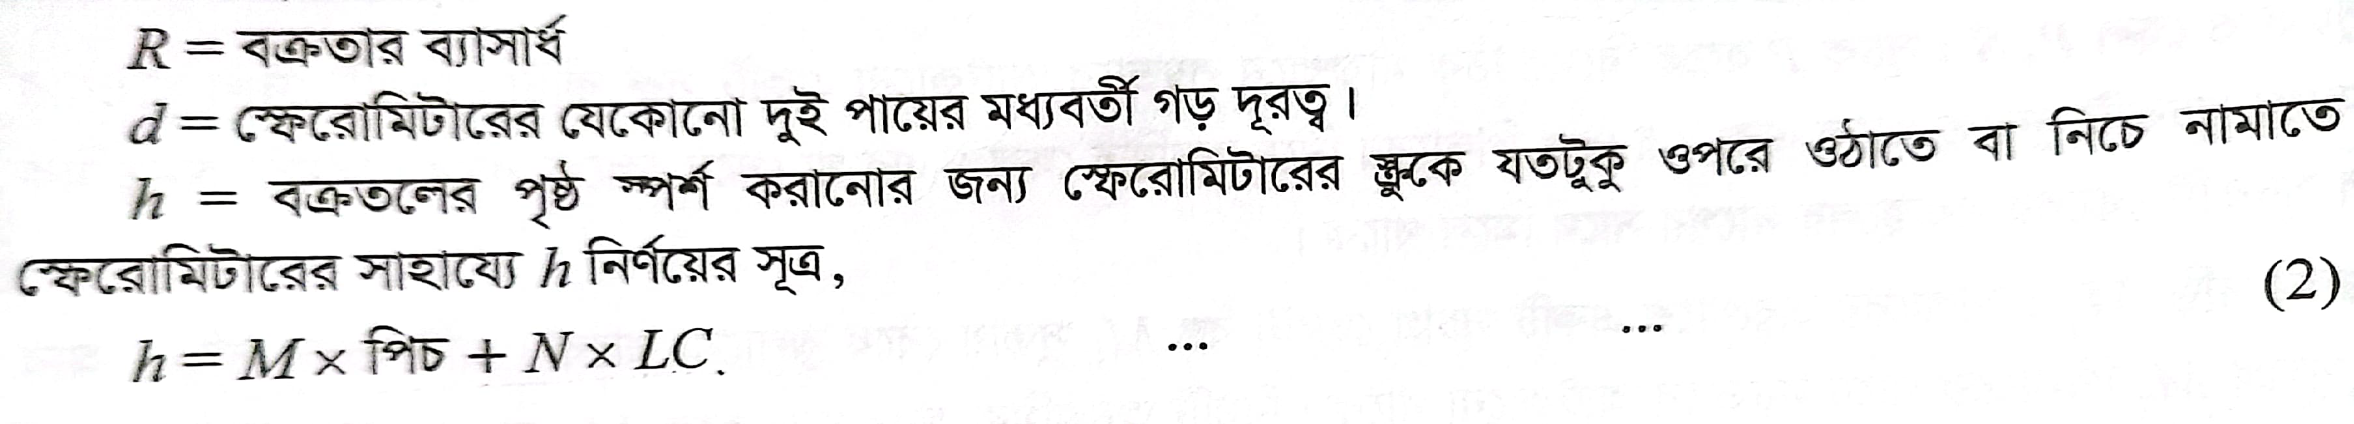 R = বক্রতার ব্যাসার্ধ
d = স্ফেরোমিটারের যেকোনো দুই পায়ের মধ্যবর্তী গড় দূরত্ব।
h = বক্রতলের পৃষ্ঠ স্পর্শ করানোর জন্য স্ফেরোমিটারের স্ক্রুকে যতটুকু ওপরে ওঠাতে বা নিচে নামাতে
স্ফেরোমিটারের সাহায্যে h নির্ণয়ের সূত্র,
h = M × পিচ + N × LC. ... ... (2)